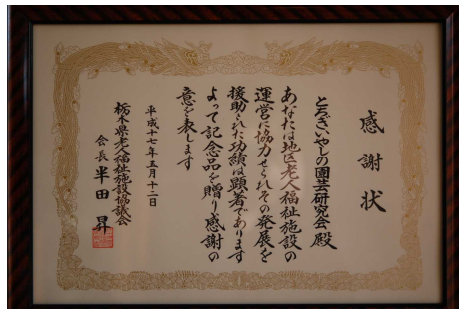 感謝状
とちぎいやしの園芸研究会殿
あなたは地区老人福祉施設の
運営に協力せられその発展を
援助された功績は顕著であります
よって記念品を贈り感謝の
意を表します
平成十七年五月十二日
栃木県老人福祉施設協議会
会長 半田 昇